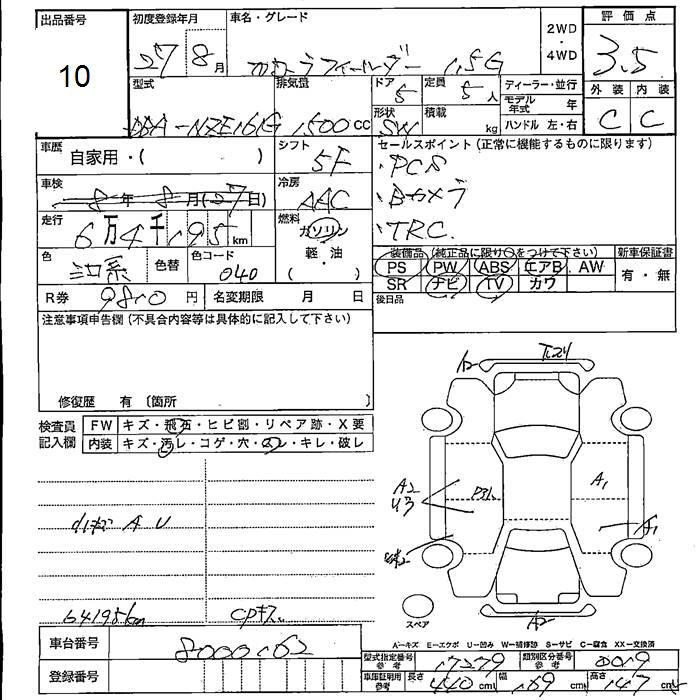 出品番号 初度登録年月 車名・グレード 2WD 評価点
10 27 8月 カローラフィールダー 1.5G 4WD 3.5
型式 排気量 ドア 定員 ディーラー・並行 外装 内装
DBA-NZE161G 1500cc 5 5人 モデル年式 年 C C
形状 SW 積載 kg ハンドル 左・右
車歴 自家用・( ) シフト 5F セールスポイント (正常に機能するものに限ります)
車検 8年8月(27日) 冷房 AAC ・PCS
・Bカメラ
走行 6万4千195km 燃料 ガソリン ・TRC
軽・油
( )
色 色替 色コード 040 装備品 (純正品に限り○をつけて下さい) 新車保証書
系 PS PW ABS エアB AW 有・無
SR ナビ TV カワ
R券 9810円 名変期限 月 日 後日品
注意事項申告欄 (不具合内容等は具体的に記入して下さい)
修復歴 有 〔箇所 〕
検査員記入欄 FW キズ・飛石・ヒビ割・リペア跡・X要
内装 キズ・汚レ・コゲ・穴・・キレ・破レ
A2
U3
A1
A1
A U
64195km CPキズ
スペア
A―キズ E―エクボ U―凹み W―補修跡 S―サビ C―腐食 XX―交換済
車台番号 8000162 型式指定番号参考 17279 類別区分番号参考 0019
登録番号 車庫証明用参考 長さ 440cm 幅 169cm 高さ 147cm